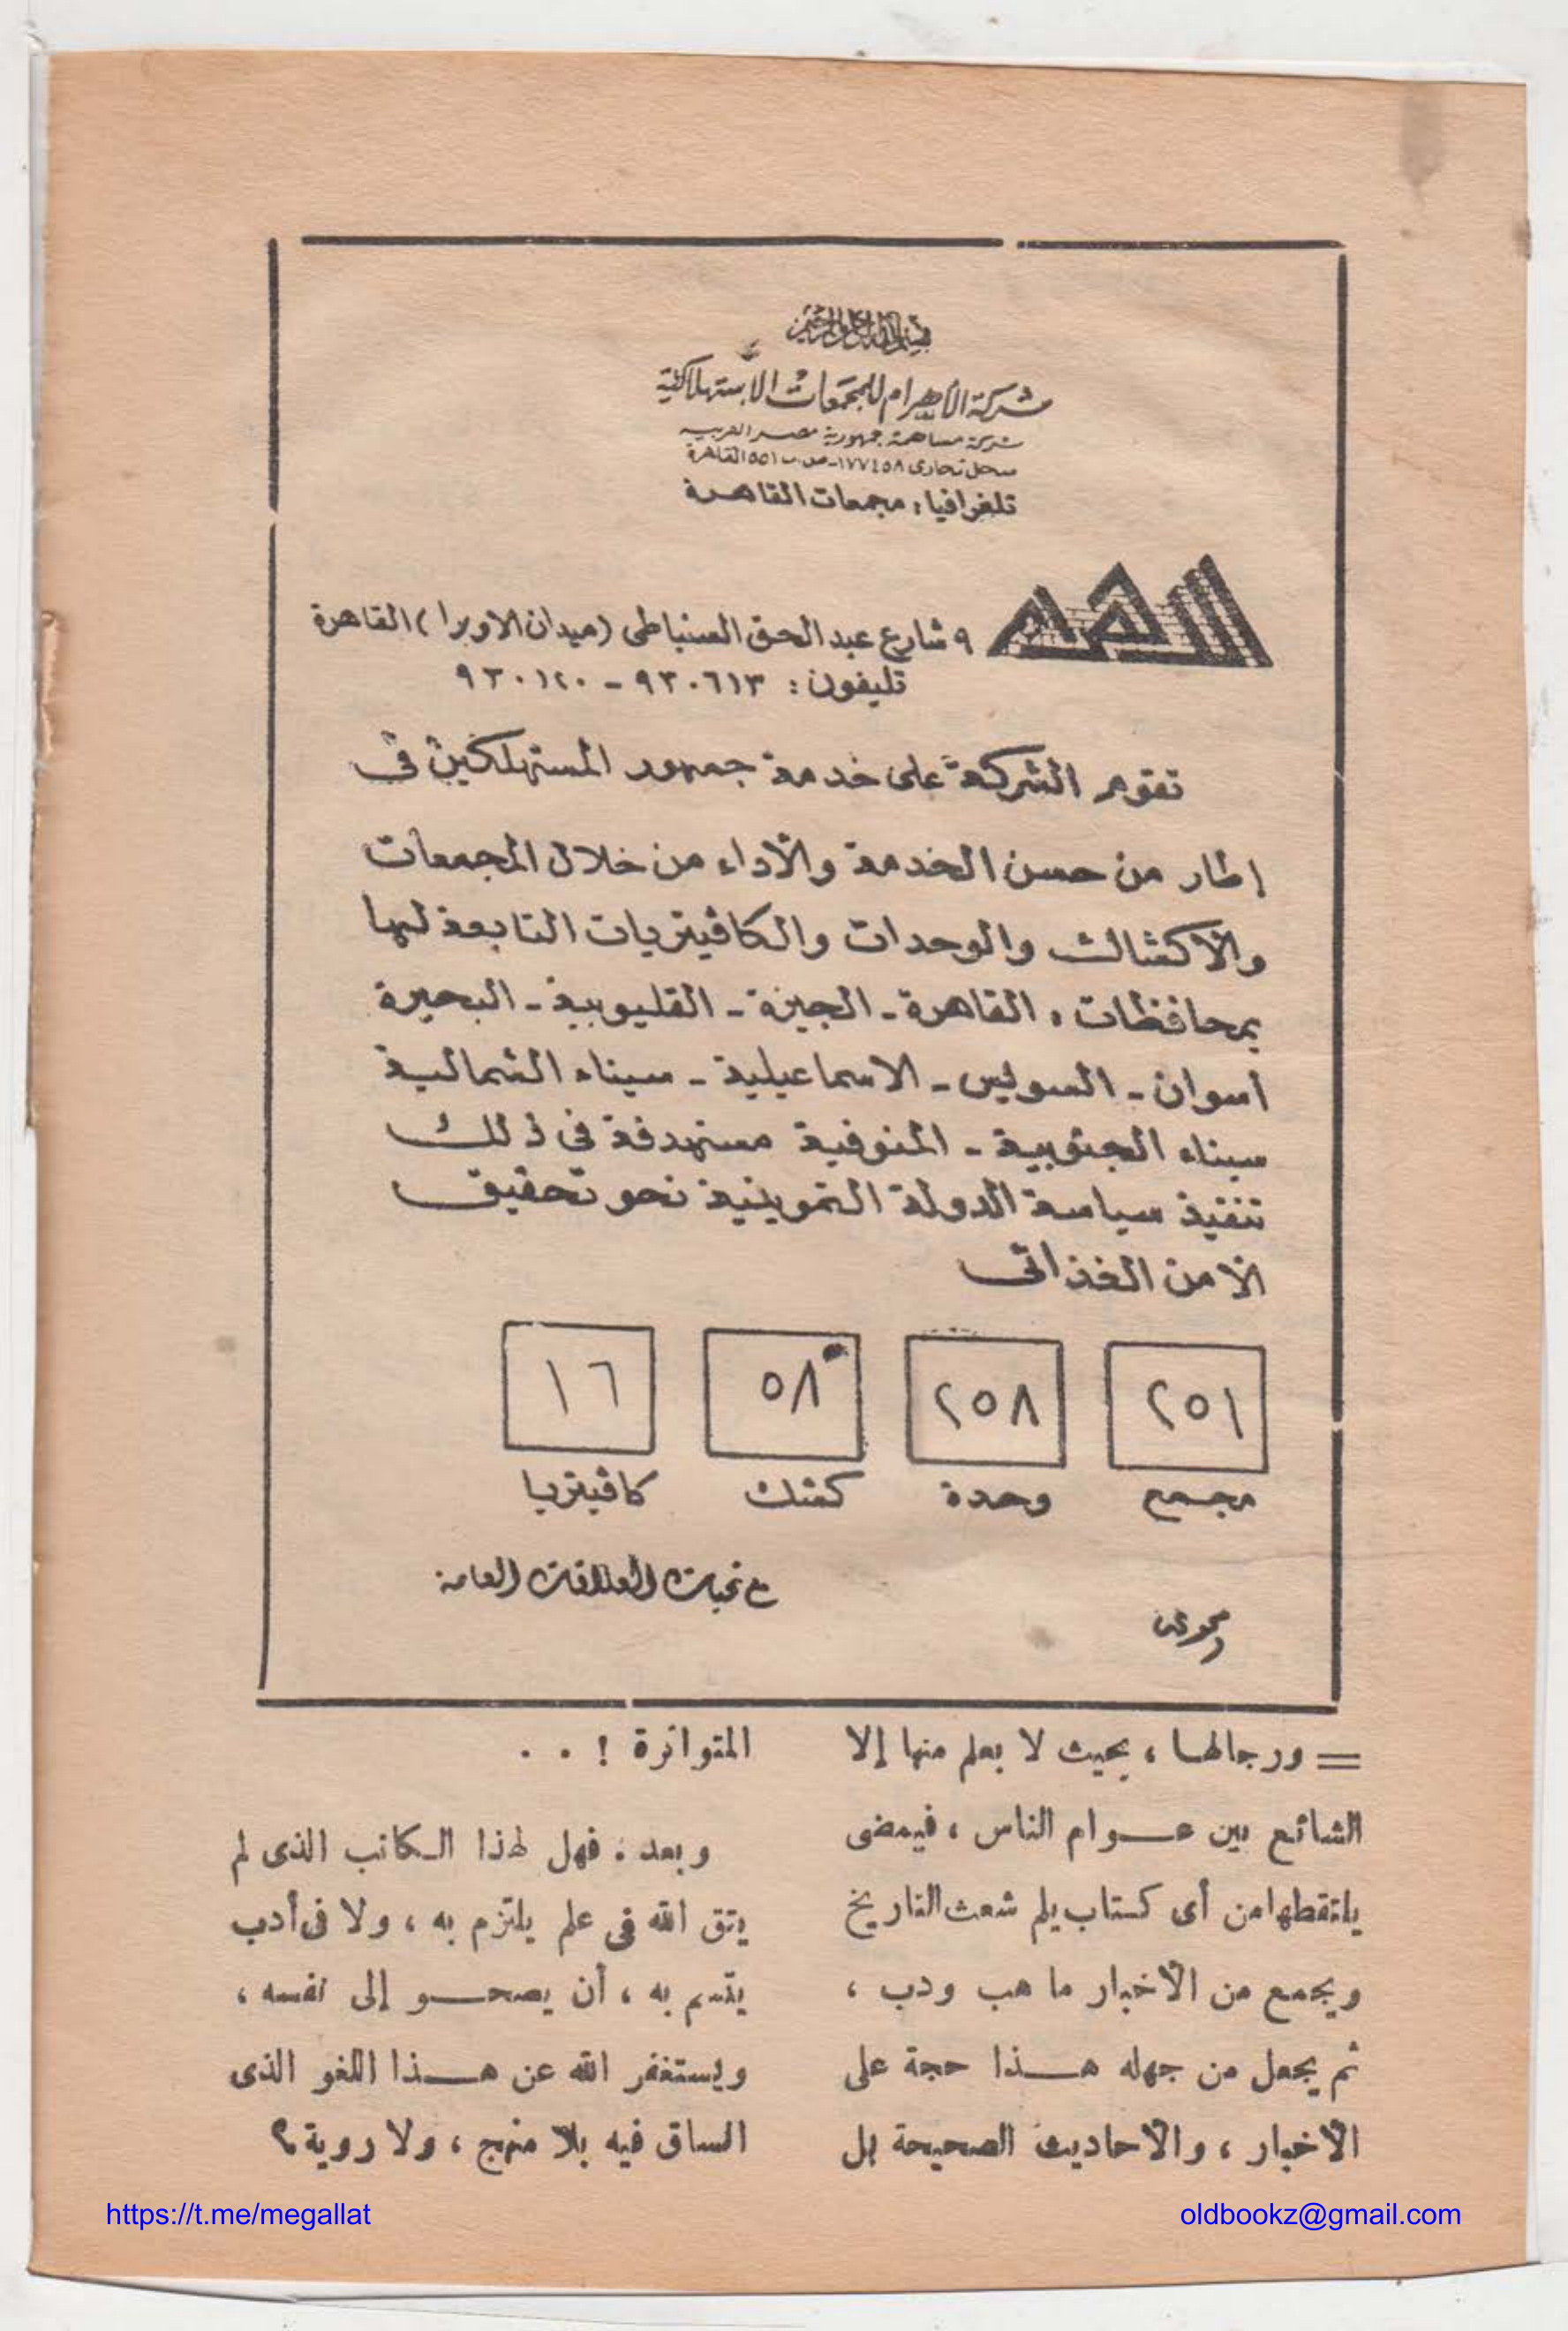 بسم الله الرحمن الرحيم
شركة الأهرام للمجمعات الاستهلاكية
شركة مساهمة جمهورية مصر العربية
سجل تجارى ١٧٧٤٥٨ - ص.ب ٥٥١ القاهرة
تلغرافيا : مجمعات القاهرة
الاهرام
٩ شارع عبد الحق السنباطى (ميدان الاوبرا) القاهرة
تليفون : ٩٣٠٦١٣ - ٩٣٠١٢٠
تقوم الشركة على خدمة جمهور المستهلكين فى
إطار من حسن الخدمة والأداء من خلال المجمعات
والأكشاك والوحدات والكافيتريات التابعة لها
بمحافظات : القاهرة - الجيزة - القليوبية - البحيرة
أسوان - السويس - الاسماعيلية - سيناء الشمالية
سيناء الجنوبية - المنوفية مستهدفة فى ذلك
تنفيذ سياسة الدولة التموينية نحو تحقيق
الأمن الغذائى
٢٥١ ٢٥٨ ٥٨ ١٦
مجمع وحدة كشك كافيتريا
مع تحيات العلاقات العامة
= ورجالها ، بحيث لا يعلم منها إلا
الشائع بين عـــوام الناس ، فيمضى
يلتقطها من أى كتاب يلم شعث التاريخ
ويجمع من الأخبار ما هب ودب ،
ثم يجعل من جهله هـــذا حجة على
الأخبار ، والأحاديث الصحيحة بل
المتواترة ! . .
وبعد : فهل لهذا الكاتب الذى لم
يتق الله فى علم يلتزم به ، ولا فى أدب
يتسم به ، أن يصحـــو إلى نفسه ،
ويستغفر الله عن هـــذا اللغو الذى
انساق فيه بلا منهج ، ولا روية ؟
https://t.me/megallat
oldbookz@gmail.com